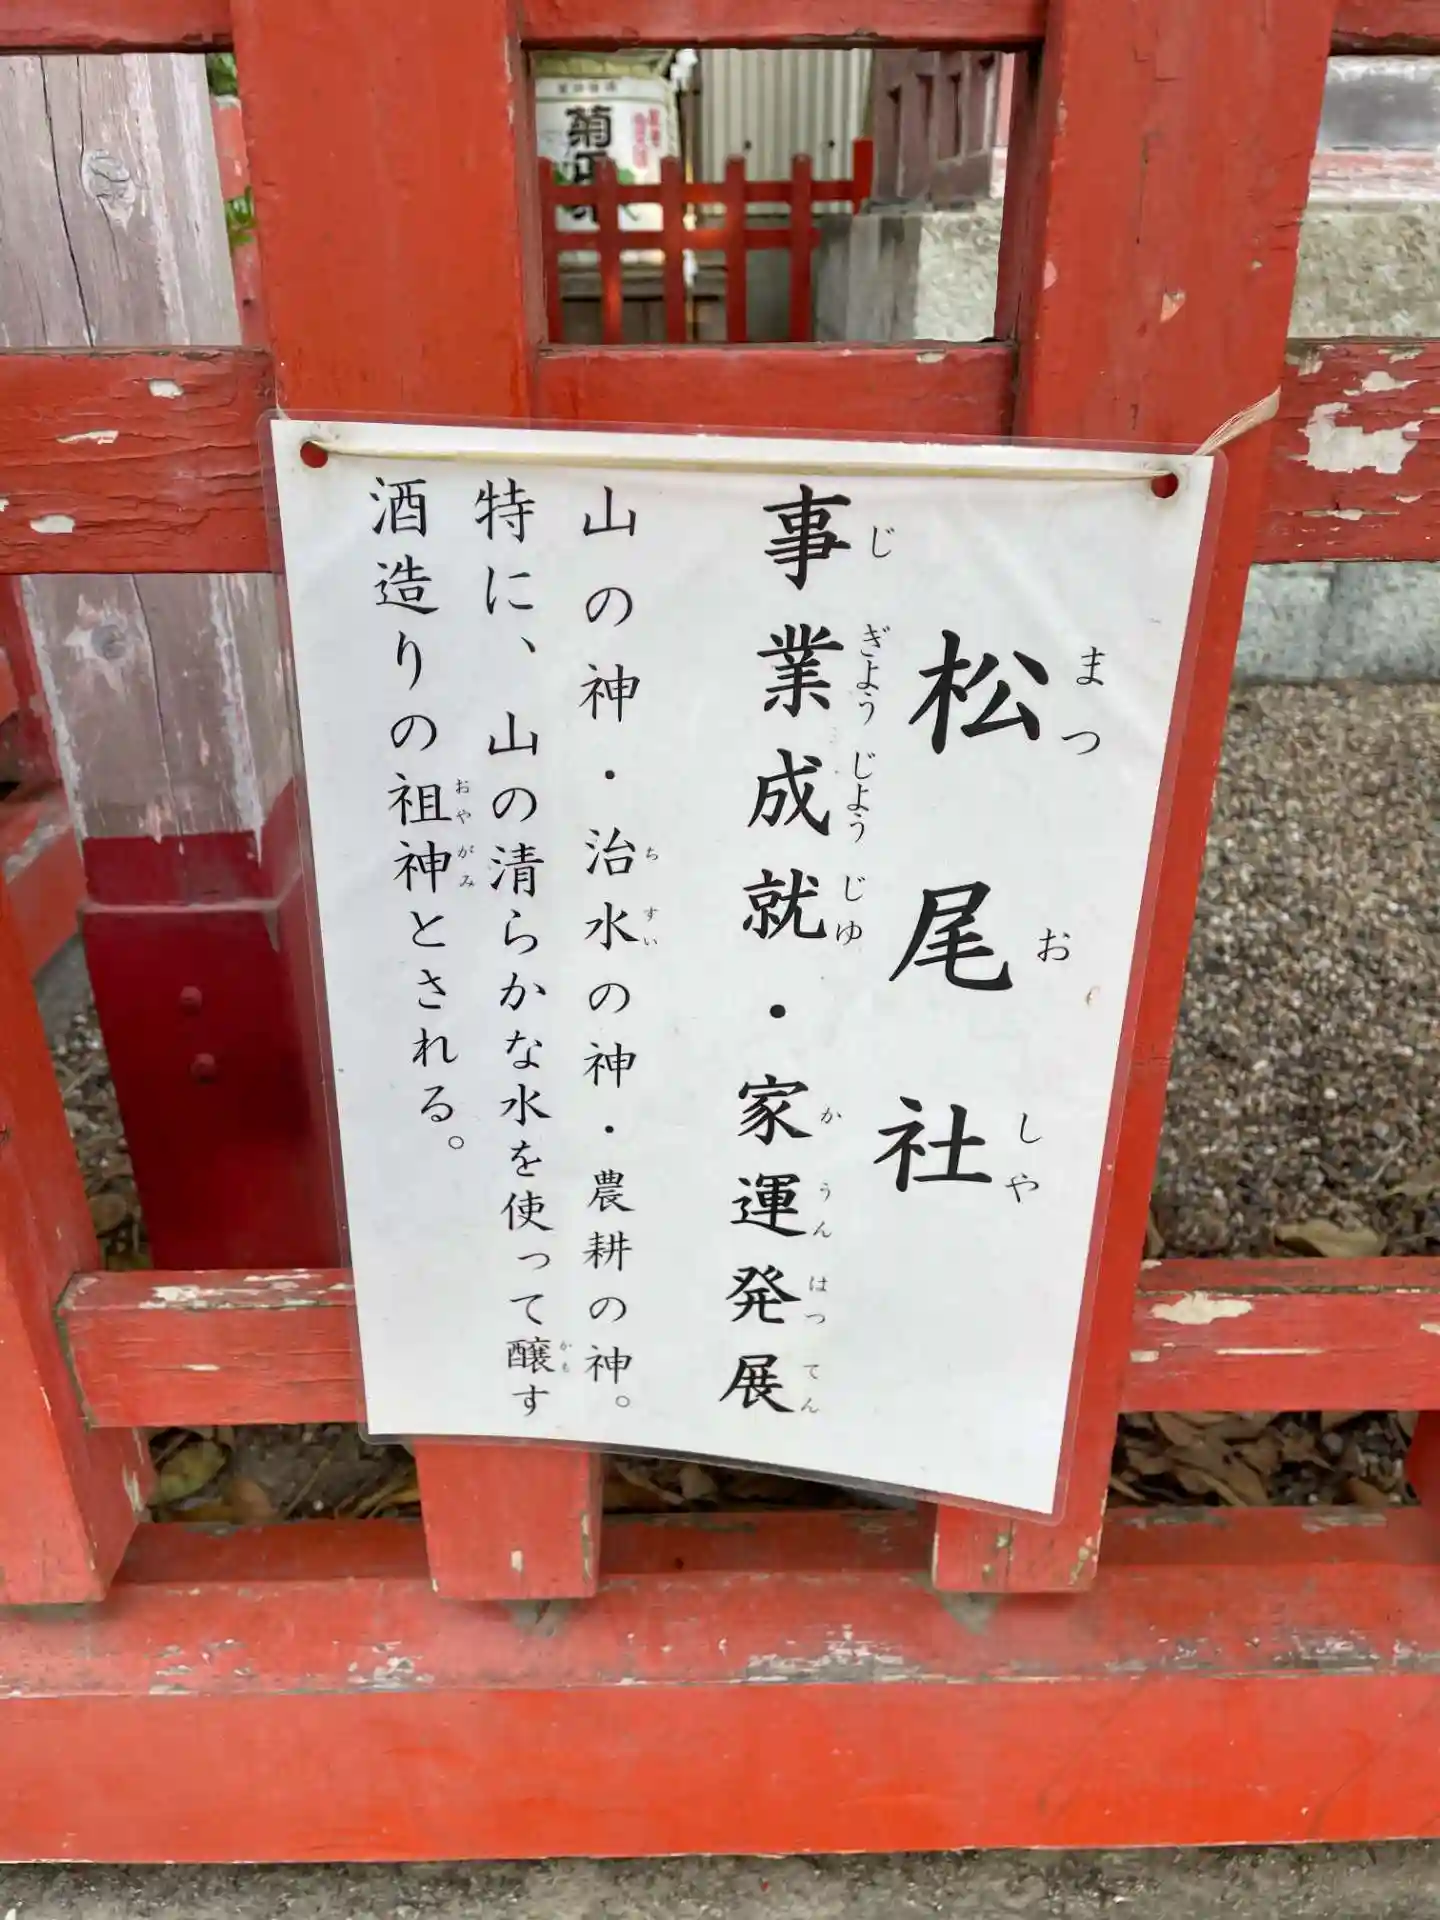 松尾社
まつおしや
事業成就・家運発展
じぎようじようじゆかうんはつてん
山の神・治水の神・農耕の神。
ちすい
特に、山の清らかな水を使って醸す
かも
酒造りの祖神とされる。
おやがみ
菊